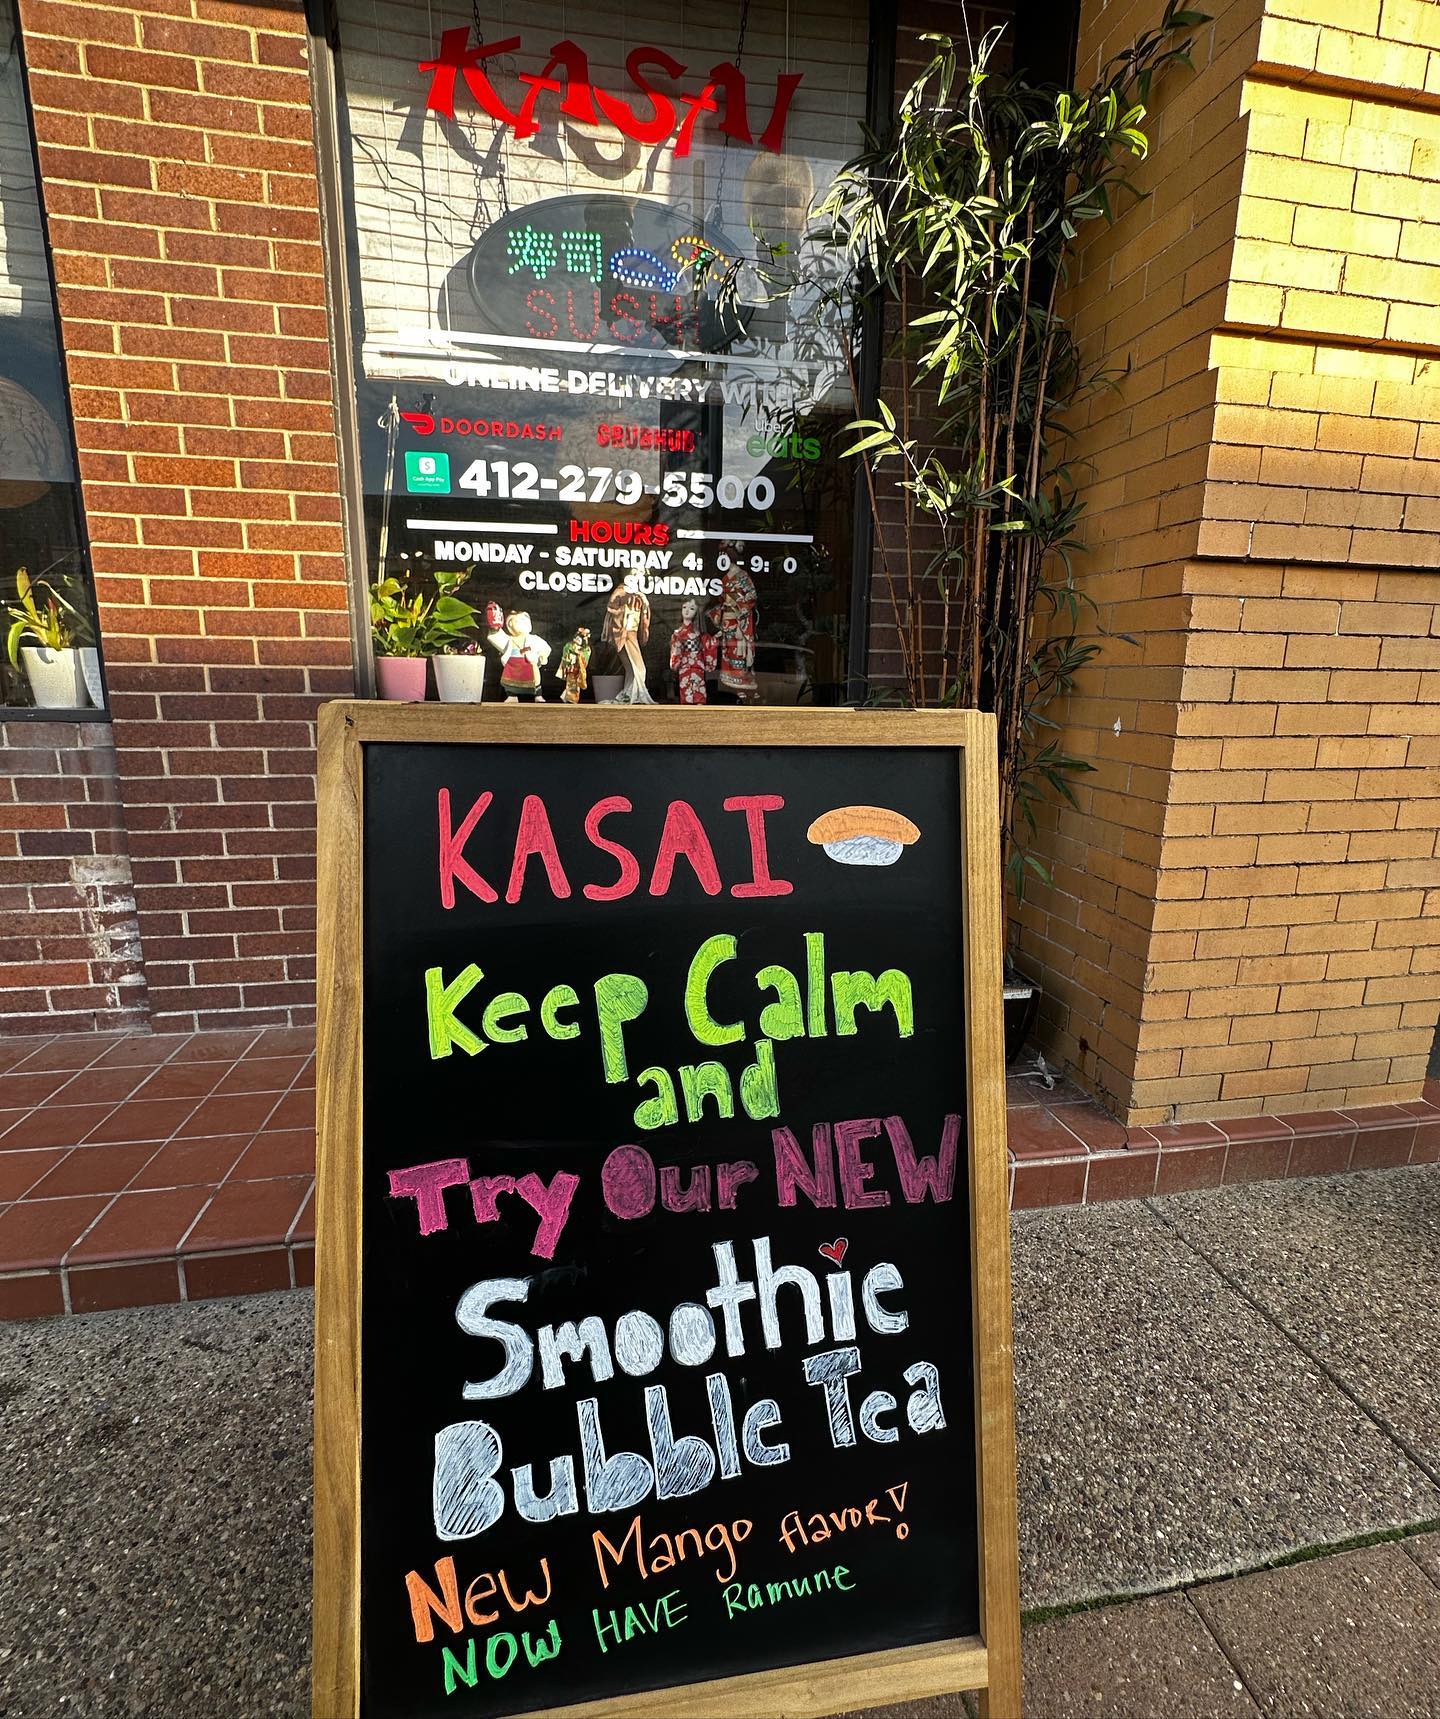 KASAI
寿司
SUSHI
ONLINE DELIVERY WITH
DOORDASH GRUBHUB Uber eats
$ Cash App Pay
412-279-5500
HOURS
MONDAY - SATURDAY 4: 0 - 9: 0
CLOSED SUNDAYS
KASAI
Keep Calm
and
Try Our NEW
Smoothie
Bubble Tea
New Mango flavor!
NOW HAVE Ramune